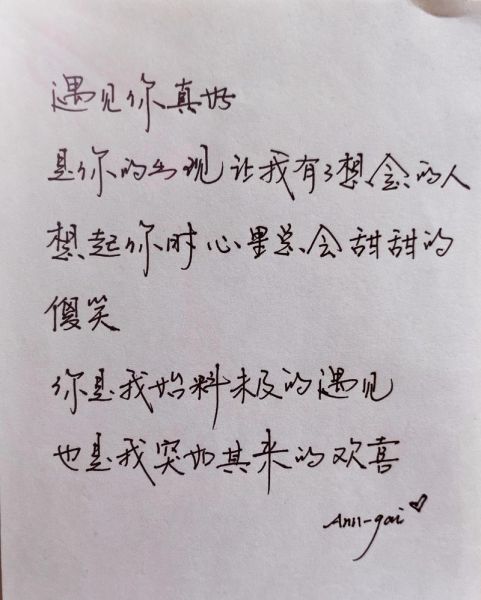 遇见你真好
是你的出现让我有了想念的人
想起你时心里总会甜甜的
傻笑
你是我始料未及的遇见
也是我突如其来的欢喜
Ann-gai